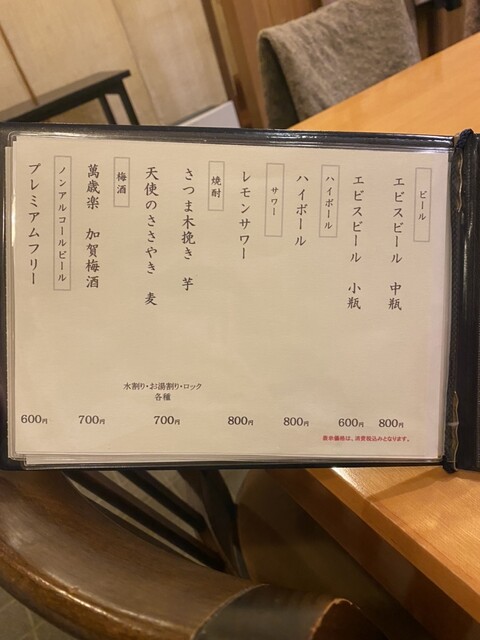 ビール
エビスビール 中瓶
800円
エビスビール 小瓶
600円
ハイボール
ハイボール
800円
サワー
レモンサワー
800円
焼酎
さつま木挽き 芋
天使のささやき 麦
水割り・お湯割り・ロック
各種
700円
梅酒
萬歳楽 加賀梅酒
700円
ノンアルコールビール
プレミアムフリー
600円
表示価格は、消費税込みとなります。